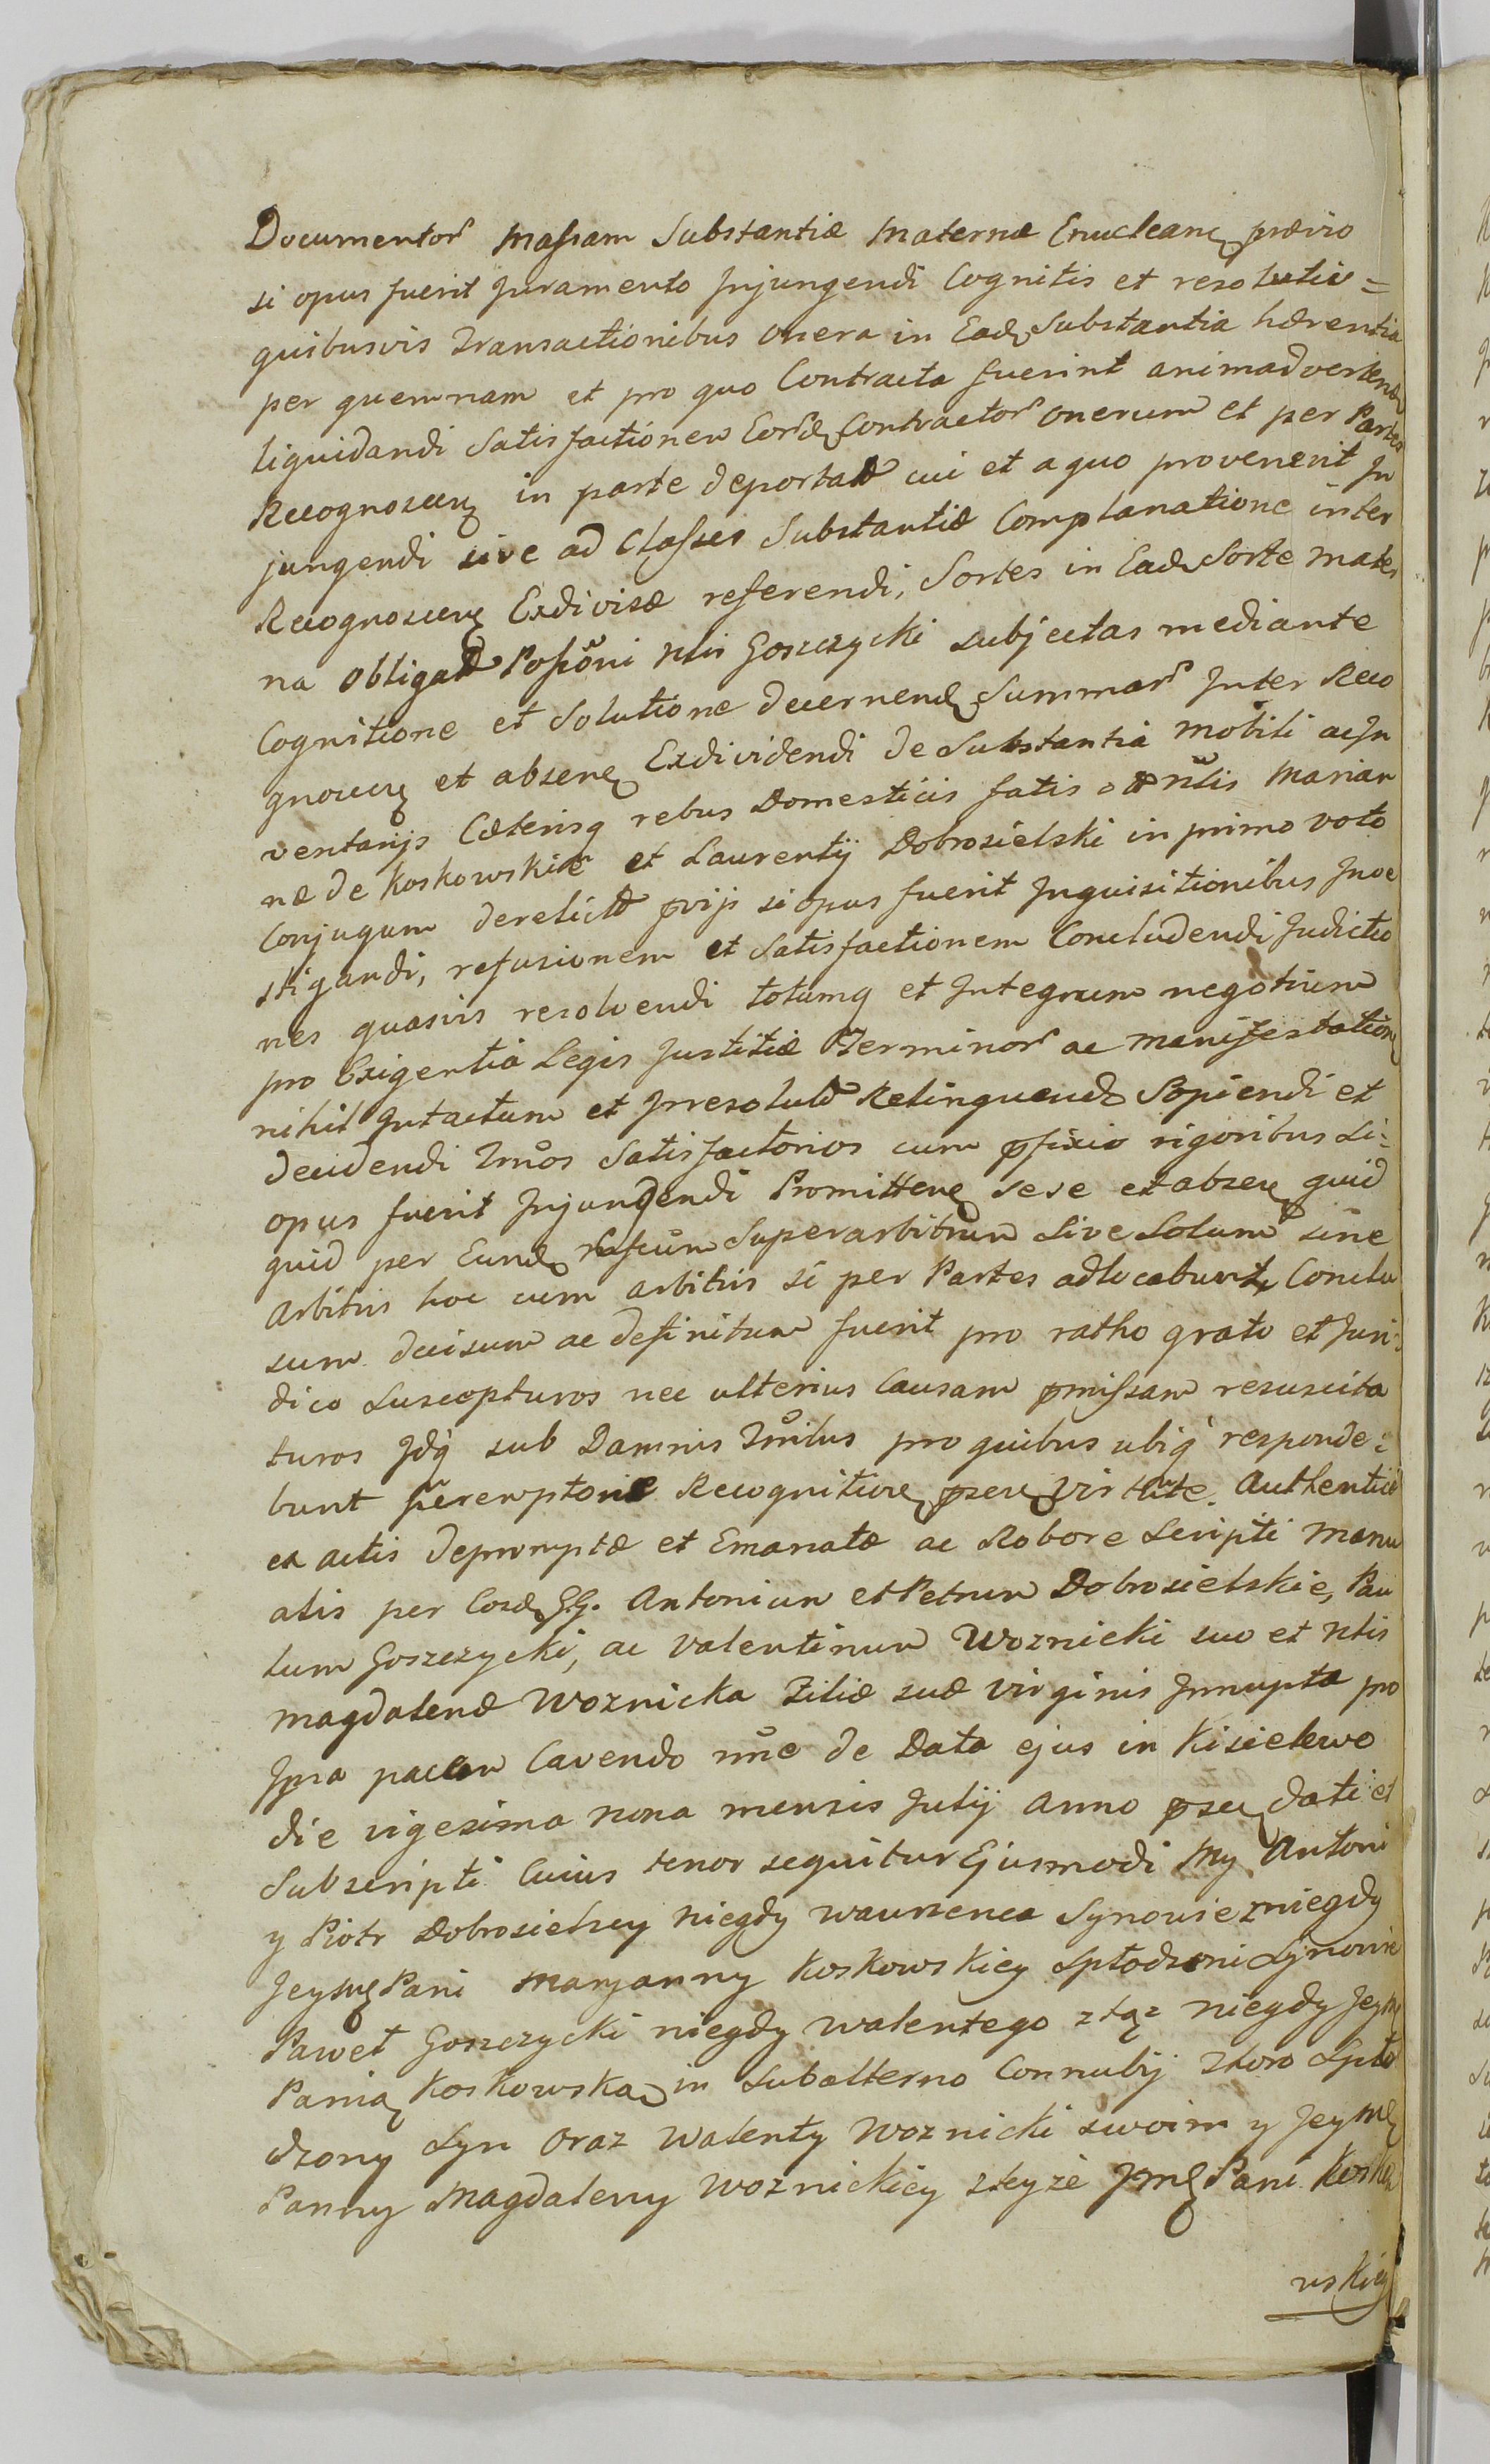 Documentor Massam Substantiæ Maternæ Enuclean prævio
si opus fuerit Juramento Injungendi Cognitis et resolutis =
quibusvis Transactionibus Onera in Ead Substantia hærentia
per quemnam et pro quo Contracta fuerint animadverten
liquidandi Satisfactionem Eord Contractor Onerum et per Partes
Recognoscen in parte deportat cui et a quo provenerit In
jungendi sive ad Classes Substantiæ Complanatione inter
Recognoscen Exdivisæ referendi, Sortes in Ead Sorte Mater
na Obligat Possōni Nlis Goszczycki subjectas mediante
Cognitione et Solutione decernend Summar Inter Reco
gnoscen et absen Exdividendi de Substantia Mobili ac In
ventarijs Cæterisq rebus Domesticis fatis Nlis Marian
næ de Koskowskie et Laurentij Dobrosielski in primo voto
Conjugum derelict pvijs si opus fuerit Inquisitionibus Inve
stigandi, refusionem et Satisfactionem Concludendi Judictio
nes quasvis resolvendi totumq et Integrum negotium
pro Exigentia Legis Justitiæ Terminor ac manifestation
nihil Intactum et Irresolut Relinquend Sopiendi et
decidendi Tmos Satisfactorios cum pfixio rigoribus Si=
opus fuerit Injungendi Promitten sese et absen quid
quid per Eund Superarbitrum Sive Solum sine
Arbitris hoc cum arbitris si per Partes adlocabunt Conclu
sum decisum ac definitum fuerit pro ratho grato et Juri=
dico Suscepturos nec ulterius Causam pmissam resuscita
turos Idq sub Damnis Tmilus pro quibus ubiq responde=
bunt peremptorie Recognitione psen virtute Authentice
ex actis depromptæ et Emanatæ ac Robore Scripti Manu
alis per Eosd GG. Antonium et Petrum Dobrosielskie, Pau
lum Goszczycki, ac Valentinum Woznicki suo et Nlis
Magdalenæ Woznicka Filiæ suæ Virginis Innupta pro
Ipsa pacem Cavendo nnc de Data ejus in Kisielewo
die vigesima nona mensis Julij Anno psen dati et
Subscripti Cuius tenor sequitur Ejusmodi My Antoni
y Piotr Dobrosielscy niegdy Wawrzenca Synowie z niegdy
Jeym Pani Maryanny Koskowskiey Spłodzoni Synowie
Paweł Goszczycki niegdy Walentego z tąz niegdy Jeym
Panią Koskowską in Subalterno Connubij Thoro Spło
dzony Syn Oraz Walenty Woznicki swoim y Jeym
Panny Magdaleny Woznickiey z teyże Jm Pani Kosko
wskiey